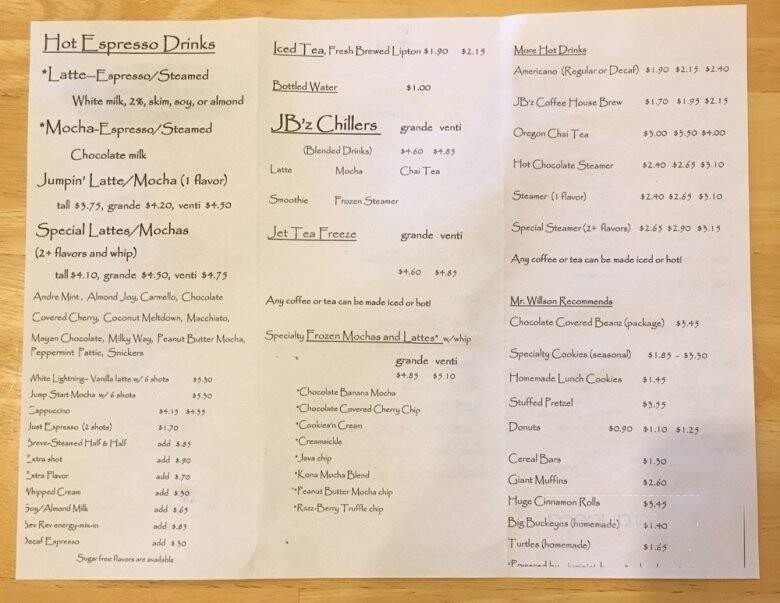 Hot Espresso Drinks
*Latte—Espresso/Steamed
White milk, 2%, skim, soy, or almond
*Mocha-Espresso/Steamed
Chocolate milk
Jumpin' Latte/Mocha (1 flavor)
tall $3.75, grande $4.20, venti $4.50
Special Lattes/Mochas
(2+ flavors and whip)
tall $4.10, grande $4.50, venti $4.75
Andre Mint, Almond Joy, Carmello, Chocolate
Covered Cherry, Coconut Meltdown, Macchiato,
Mayan Chocolate, Milky Way, Peanut Butter Mocha,
Peppermint Pattie, Snickers
White Lightning– Vanilla latte w/ 6 shots $5.50
Jump Start Mocha w/ 6 shots $5.50
Cappuccino $4.15 $4.35
Just Espresso (2 shots) $1.70
Breve-Steamed Half & Half add $.85
Extra shot add $.90
Extra Flavor add $.70
Whipped Cream add $.50
Soy/Almond Milk add $.65
Rev energy-mix-in add $.85
Decaf Espresso add $.50
Sugar free flavors are available
Iced Tea, Fresh Brewed Lipton $1.90 $2.15
Bottled Water $1.00
JB'z Chillers grande venti
(Blended Drinks) $4.60 $4.85
Latte Mocha Chai Tea
Smoothie Frozen Steamer
Jet Tea Freeze grande venti
$4.60 $4.85
Any coffee or tea can be made iced or hot!
Specialty Frozen Mochas and Lattes* w/whip
grande venti
$4.85 $5.10
*Chocolate Banana Mocha
*Chocolate Covered Cherry Chip
*Cookies'n Cream
*Creamsickle
*Java chip
*Kona Mocha Blend
*Peanut Butter Mocha chip
*Razz-Berry Truffle chip
More Hot Drinks
Americano (Regular or Decaf) $1.90 $2.15 $2.40
JB'z Coffee House Brew $1.70 $1.95 $2.15
Oregon Chai Tea $3.00 $3.50 $4.00
Hot Chocolate Steamer $2.40 $2.65 $3.10
Steamer (1 flavor) $2.40 $2.65 $3.10
Special Steamer (2+ flavors) $2.65 $2.90 $3.15
Any coffee or tea can be made iced or hot!
Mr. Willson Recommends
Chocolate Covered Beanz (package) $3.45
Specialty Cookies (seasonal) $1.85 - $3.50
Homemade Lunch Cookies $1.45
Stuffed Pretzel $3.55
Donuts $0.90 $1.10 $1.25
Cereal Bars $1.50
Giant Muffins $2.60
Huge Cinnamon Rolls $3.45
Big Buckeyes (homemade) $1.40
Turtles (homemade) $1.65